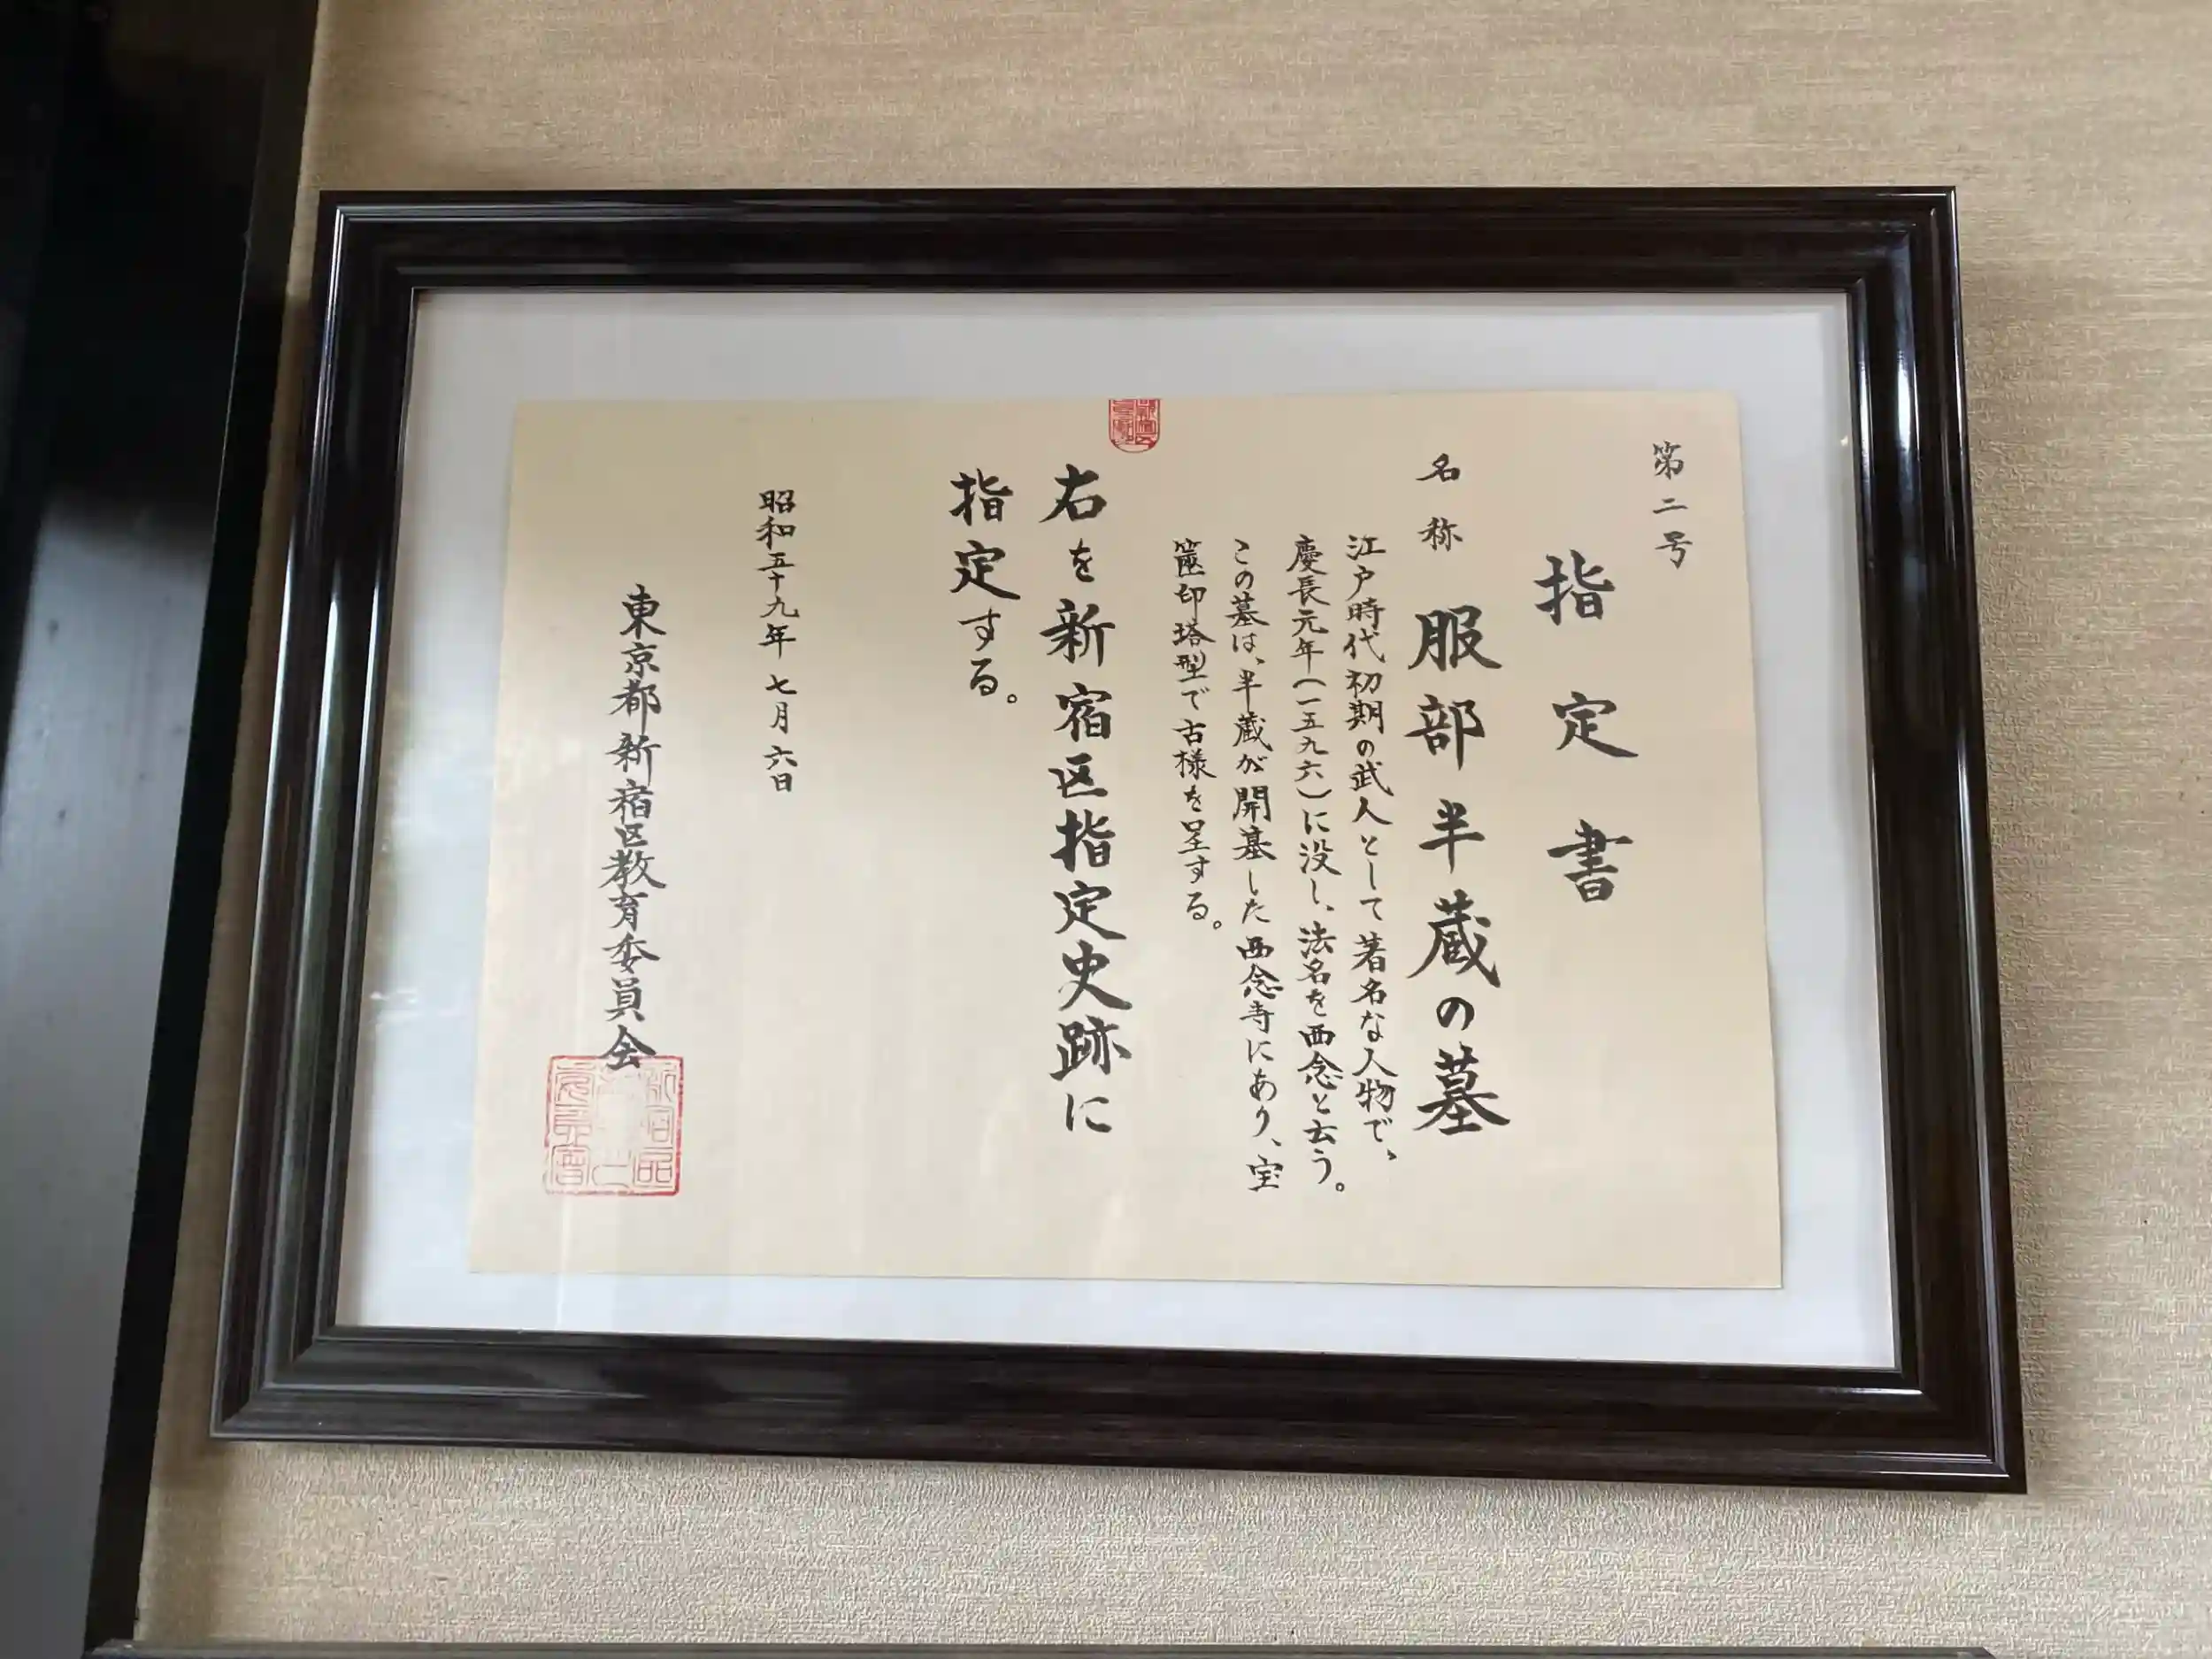 第二号
指定書
名称 服部半蔵の墓
江戸時代初期の武人として著名な人物で、
慶長元年(一五九六)に没し、法名を西念と云う。
この墓は、半蔵が開基した西念寺にあり、宝
篋印塔型で古様を呈する。
右を新宿区指定史跡に
指定する。
昭和五十九年七月六日
東京都新宿区教育委員会